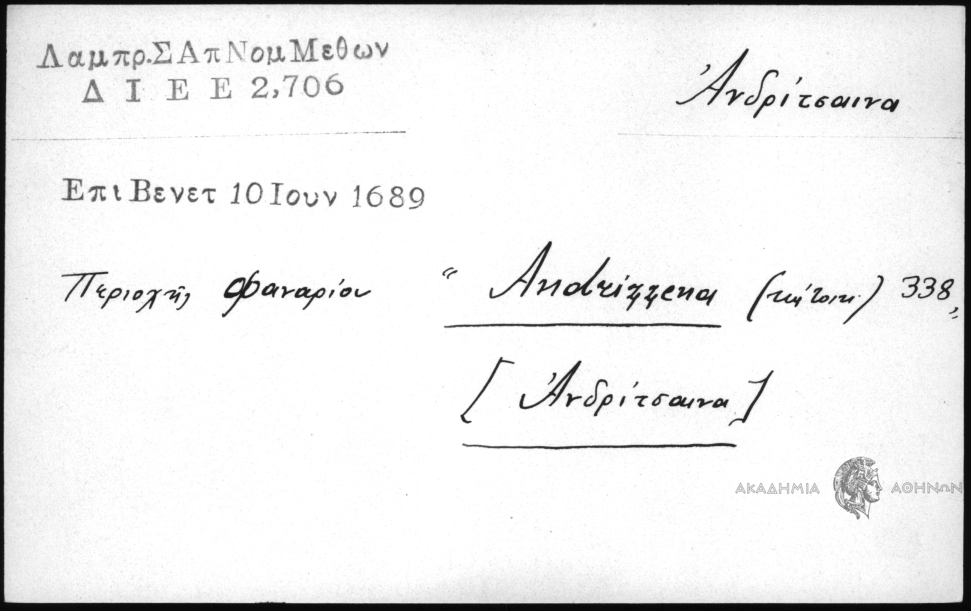 Λαμπρ.ΣΑπΝομΜεθων
Δ Ι Ε Ε 2,706
Ἀνδρίτσαινα
ΕπιΒενετ 10Ιουν 1689
Περιοχῆς Φαναρίου “ Andrizzena (κάτοικ.) 338„
[Ἀνδρίτσαινα]
ΑΚΑΔΗΜΙΑ ΑΘΗΝΩΝ